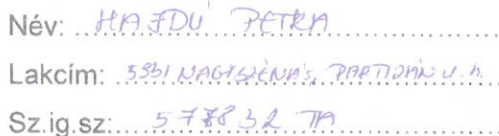 Név: HAJDÚ PETRA
Lakcím: 5931 NAGYSZÉNÁS, PARTIZÁN u. 4.
Sz.ig.sz: 577832 TA